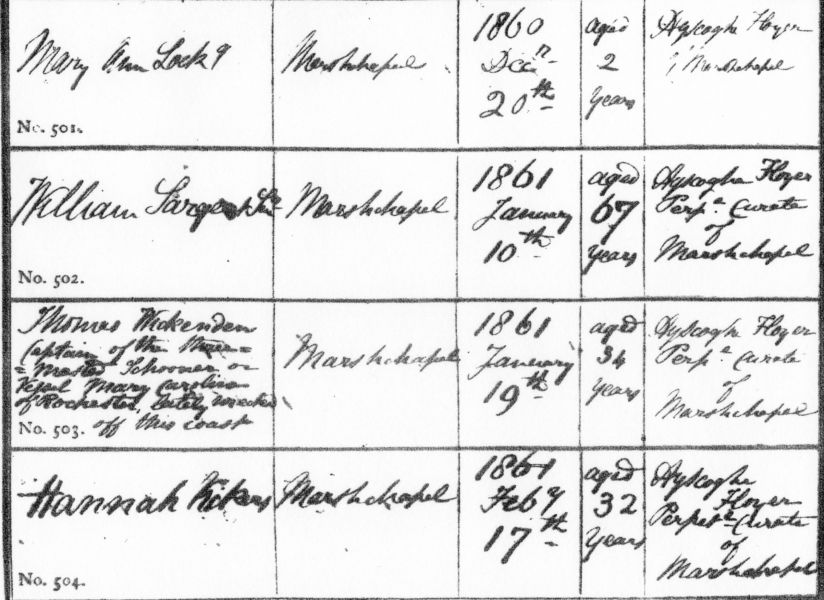 Mary Ann Lock
Marshchapel
1860
Decr
20th
aged
2
years
Ayscoghe Floyer
Marshchapel
No. 501.
William Sargent Senr
Marshchapel
1861
January
10th
aged
67
years
Ayscoghe Floyer
Perpe Curate
of
Marshchapel
No. 502.
Thomas Wickenden
Captain of the Three=
=Masted Schooner or
Vessel Mary Caroline
of Rochester, lately wrecked
off this coast
No. 503.
Marshchapel
1861
January
19th
aged
34
years
Ayscoghe Floyer
Perpe Curate
of
Marshchapel
Hannah Vickers
Marshchapel
1861
Feby
17th
aged
32
Years
Ayscoghe
Floyer
Perpete Curate
of
Marshchapel
No. 504.